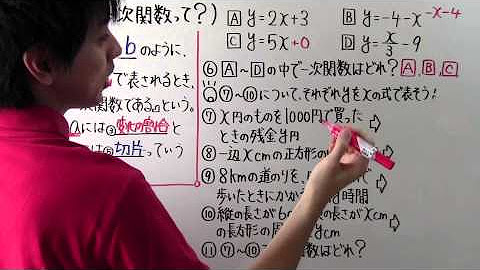 次関数って?)
bのように、
で表されるとき、
次関数である。という。
aには③変化の割合と
は⑤切片っていう
A y=2x+3
B y=-4-x -x-4
C y=5x+0
D y=x/3-9
⑥A~Dの中で一次関数はどれ? A, B, C
⑦~⑩について、それぞれyをxの式で表そう!
⑦x円のものを1000円で買った
ときの残金y円
⑧一辺xcmの正方形の
⑨8kmの道のりを、
歩いたときにかかる 時間
⑩縦の長さが6 の長さがxcm
の長方形の周 ycm
⑪⑦~⑩ 関数はどれ?